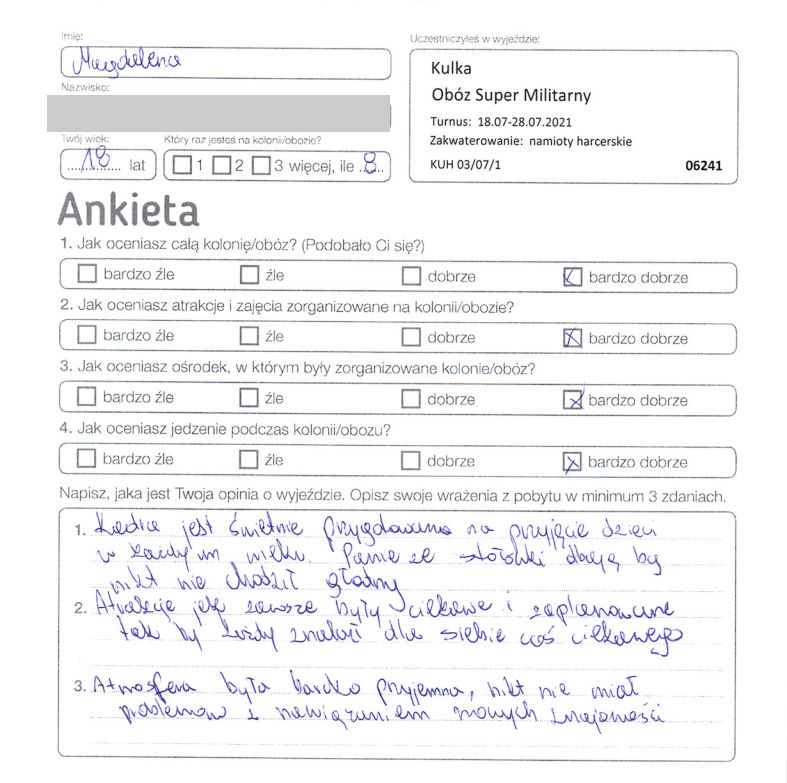 Imię:
Magdalena
Nazwisko:
Twój wiek:
18 lat
Który raz jesteś na kolonii/obozie?
1 2 3 więcej, ile 8
Uczestniczyłeś w wyjeździe:
Kulka
Obóz Super Militarny
Turnus: 18.07-28.07.2021
Zakwaterowanie: namioty harcerskie
KUH 03/07/1 06241
Ankieta
1. Jak oceniasz całą kolonię/obóz? (Podobało Ci się?)
bardzo źle źle dobrze bardzo dobrze
2. Jak oceniasz atrakcje i zajęcia zorganizowane na kolonii/obozie?
bardzo źle źle dobrze bardzo dobrze
3. Jak oceniasz ośrodek, w którym były zorganizowane kolonie/obóz?
bardzo źle źle dobrze bardzo dobrze
4. Jak oceniasz jedzenie podczas kolonii/obozu?
bardzo źle źle dobrze bardzo dobrze
Napisz, jaka jest Twoja opinia o wyjeździe. Opisz swoje wrażenia z pobytu w minimum 3 zdaniach.
1. Kadra jest świetnie przygotowana na przyjęcie dzieci
w każdym wieku. Panie ze stołówki dbają by
nikt nie chodził głodny
2. Atrakcje jak zawsze były ciekawe i zaplanowane
tak by każdy znalazł dla siebie coś ciekawego
3. Atmosfera była bardzo przyjemna, nikt nie miał
problemów z nawiązaniem nowych znajomości